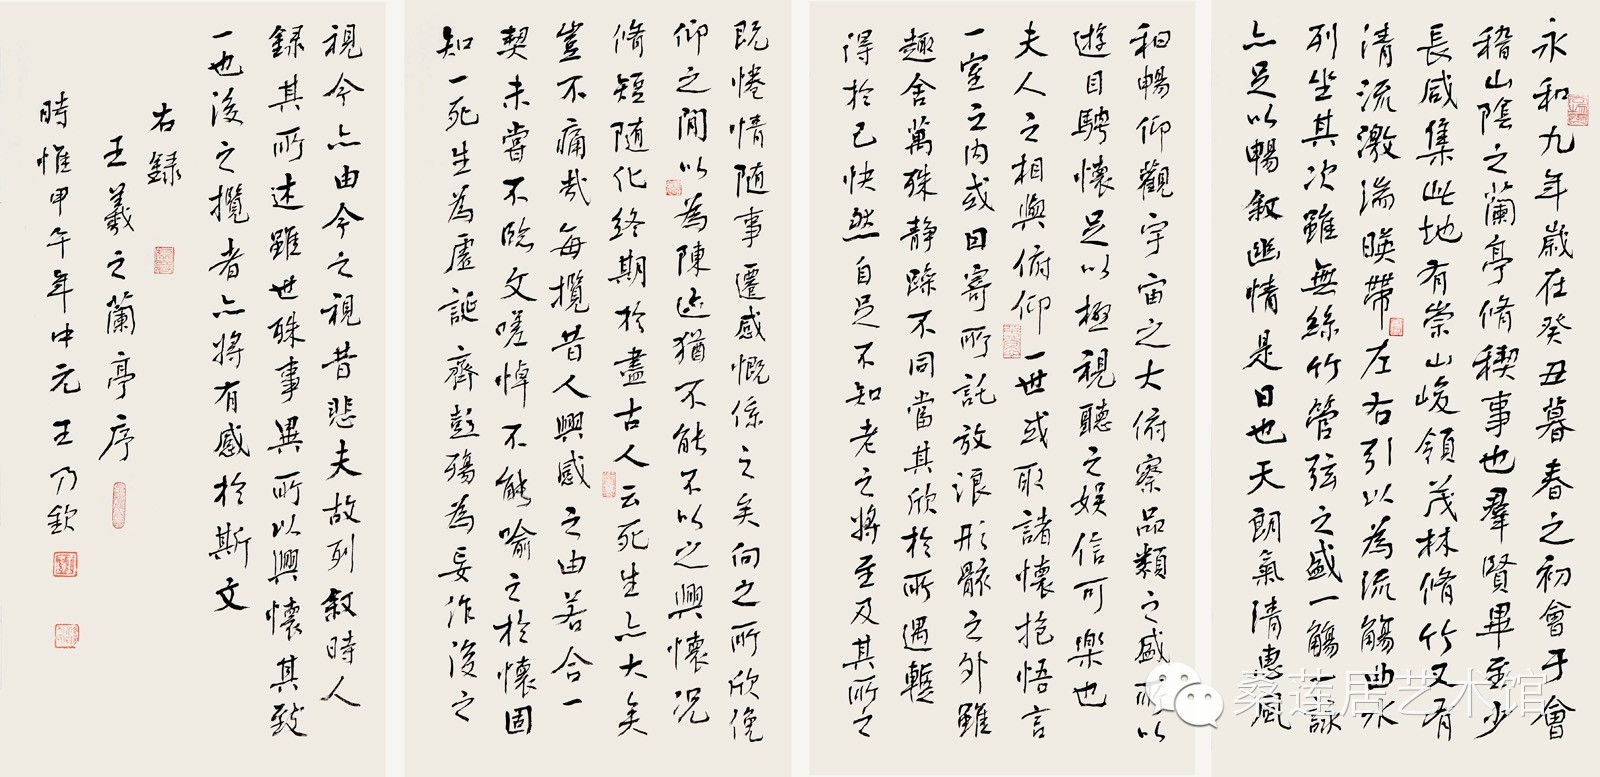 永和九年歲在癸丑暮春之初會于會
稽山陰之蘭亭脩稧事也羣賢畢至少
長咸集此地有崇山峻領茂林脩竹又有
清流激湍暎帶左右引以為流觴曲水
列坐其次雖無絲竹管弦之盛一觴一詠
亦足以暢敘幽情是日也天朗氣清惠風
和暢仰觀宇宙之大俯察品類之盛所以
遊目騁懷足以極視聽之娛信可樂也
夫人之相與俯仰一世或取諸懷抱悟言
一室之內或因寄所託放浪形骸之外雖
趣舍萬殊靜躁不同當其欣於所遇暫
得於己快然自足不知老之將至及其所之
既惓情隨事遷感慨係之矣向之所欣俛
仰之間以為陳迹猶不能不以之興懷況
脩短隨化終期於盡古人云死生亦大矣
豈不痛哉每攬昔人興感之由若合一
契未嘗不臨文嗟悼不能喻之於懷固
知一死生為虛誕齊彭殤為妄作後之
視今亦由今之視昔悲夫故列敘時人
錄其所述雖世殊事異所以興懷其致
一也後之攬者亦將有感於斯文
右錄
王羲之蘭亭序
時惟甲午年中元王乃欽
桑莲居艺术馆